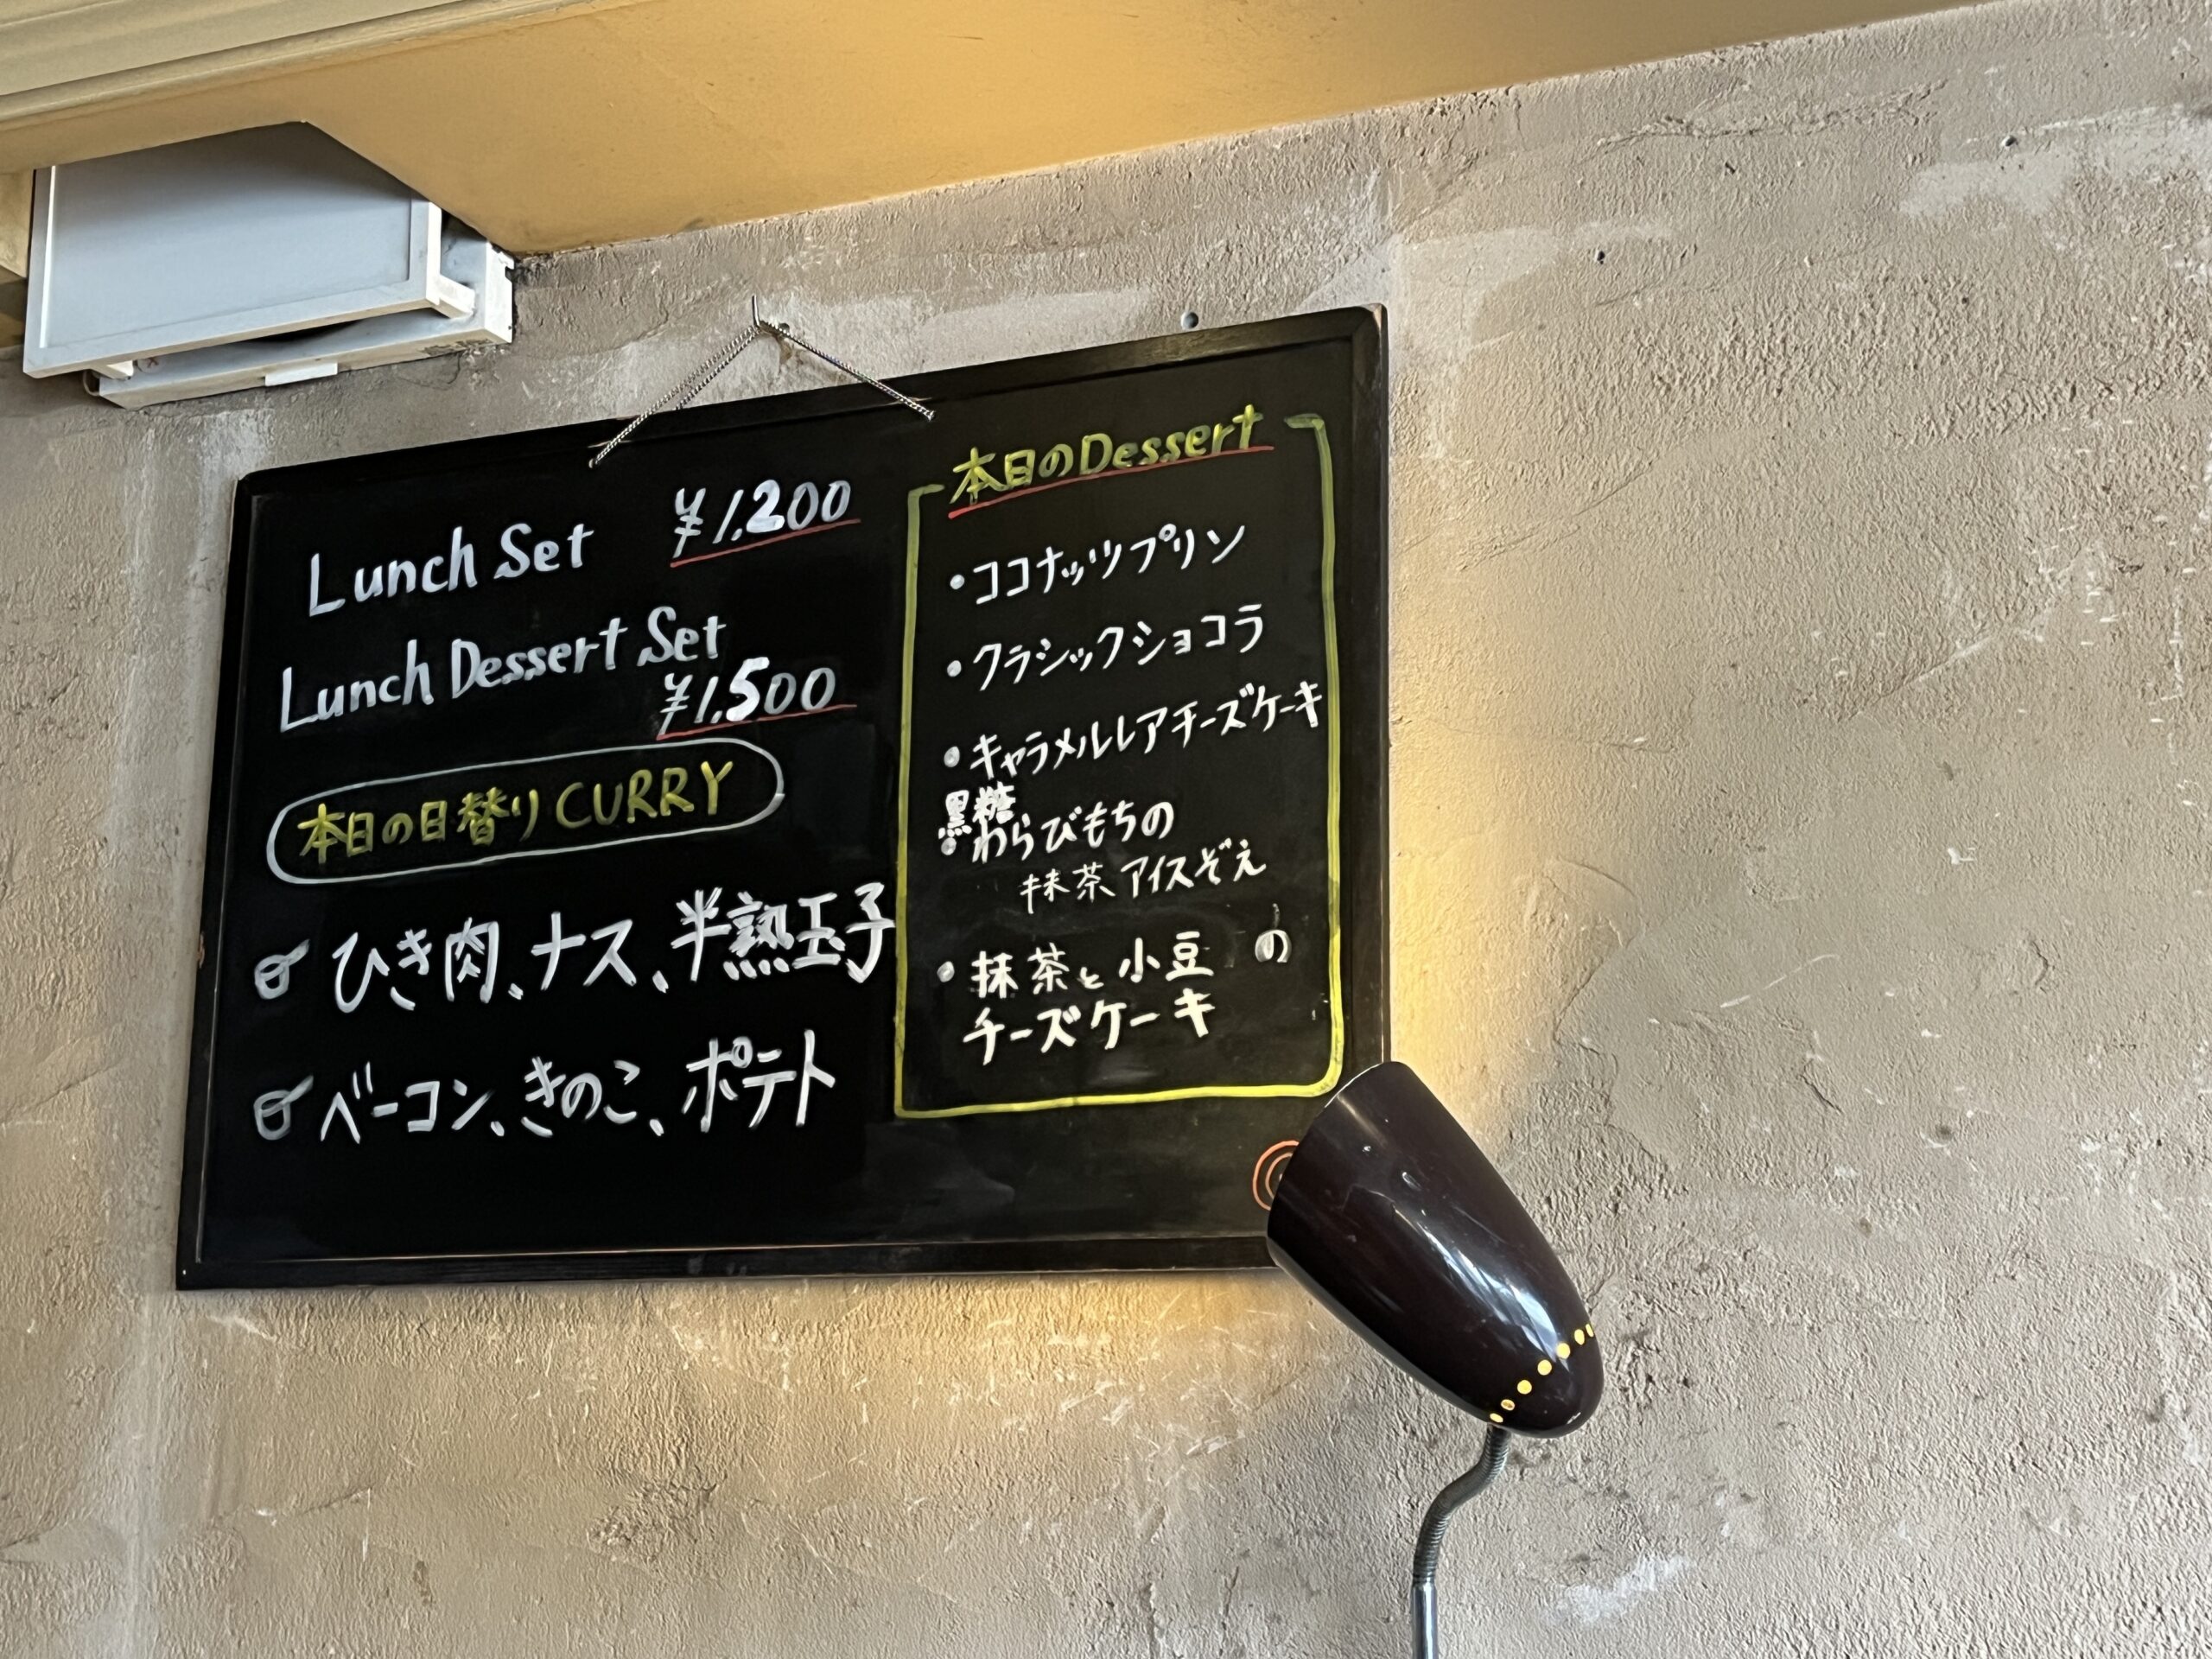 Lunch Set ¥1,200
Lunch Dessert Set
¥1,500
本日の日替りCURRY
ひき肉、ナス、半熟玉子
ベーコン、きのこ、ポテト
本日のDessert
・ココナッツプリン
・クラシックショコラ
・キャラメルレアチーズケーキ
黒糖
・わらびもちの
抹茶アイスぞえ
・抹茶と小豆の
チーズケーキ